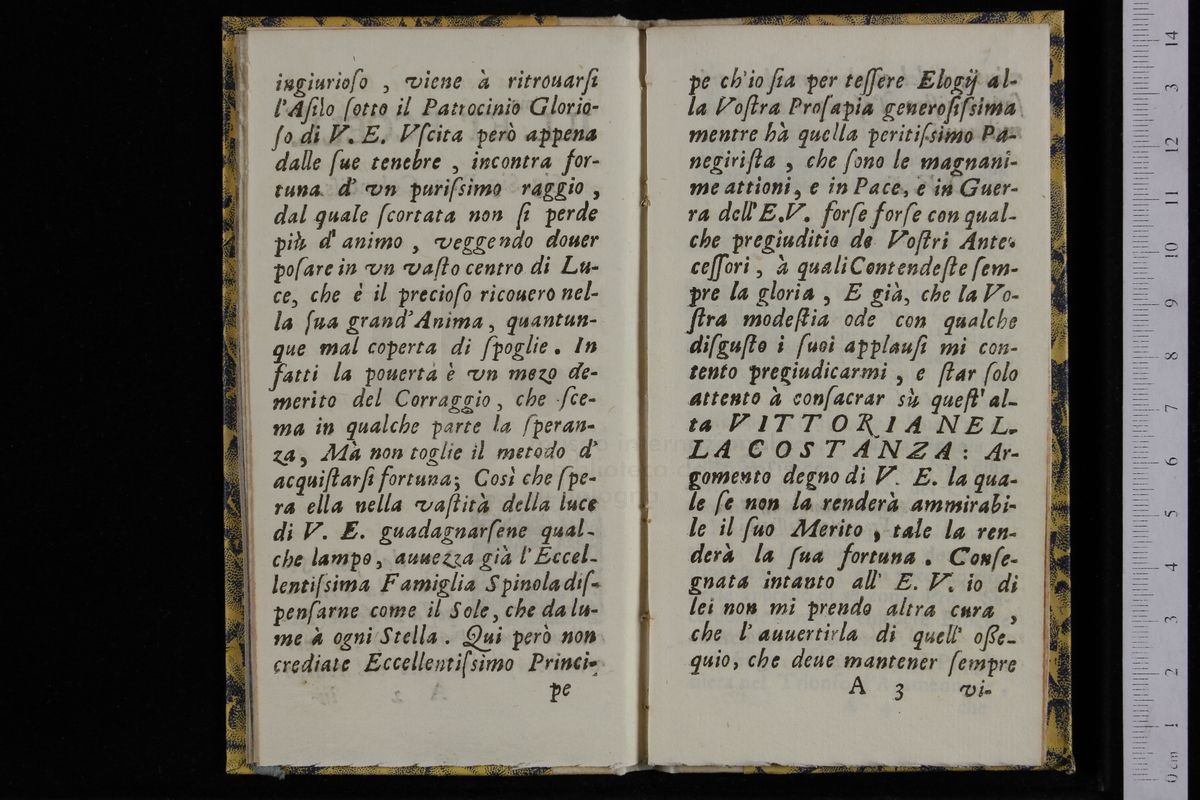 ingiurioſo , viene à ritrouarſi
l'Aſilo ſotto il Patrocinio Glorio-
ſo di V. E. Vſcita però appena
dalle ſue tenebre , incontra for-
tuna d' vn puriſsimo raggio ,
dal quale ſcortata non ſi perde
più d' animo , veggendo douer
poſare in vn vaſto centro di Lu-
ce, che è il precioſo ricouero nel-
la ſua grand'Anima, quantun-
que mal coperta di ſpoglie. In
fatti la pouertà è vn mezo de-
merito del Corraggio, che ſce-
ma in qualche parte la ſperan-
za, Mà non toglie il metodo d'
acquiſtarſi fortuna; Così che ſpe-
ra ella nella vaſtità della luce
di V. E. guadagnarſene qual-
che lampo, auuezza già l' Eccel-
lentiſsima Famiglia Spinola diſ-
penſarne come il Sole, che da lu-
me à ogni Stella. Qui però non
crediate Eccellentiſsimo Princi-
pe
pe ch'io ſia per teſſere Elogij al-
la Voſtra Proſapia generoſiſsima
mentre hà quella peritiſsimo Pa-
negiriſta , che ſono le magnani-
me attioni, e in Pace, e in Guer-
ra dell' E.V. forſe forſe con qual-
che pregiuditio de Voſtri Ante-
ceſſori, à quali Contendeſte ſem-
pre la gloria , E già, che la Vo-
ſtra modeſtia ode con qualche
diſguſto i ſuoi applauſi mi con-
tento pregiudicarmi , e ſtar ſolo
attento à conſacrar sù queſt' al-
ta VITTORIA NEL-
LA COSTANZA: Ar-
gomento degno di V. E. la qua-
le ſe non la renderà ammirabi-
le il ſuo Merito , tale la ren-
derà la ſua fortuna. Conſe-
gnata intanto all' E. V. io di
lei non mi prendo altra cura ,
che l' auuertirla di quell' oße-
quio, che deue mantener ſempre
A 3 vi-